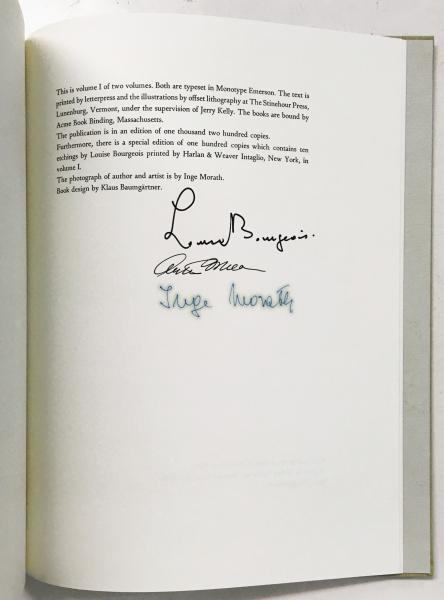 This is volume I of two volumes. Both are typeset in Monotype Emerson. The text is
printed by letterpress and the illustrations by offset lithography at The Stinehour Press,
Lunenburg, Vermont, under the supervision of Jerry Kelly. The books are bound by
Acme Book Binding, Massachusetts.
The publication is in an edition of one thousand two hundred copies.
Furthermore, there is a special edition of one hundred copies which contains ten
etchings by Louise Bourgeois printed by Harlan & Weaver Intaglio, New York, in
volume I.
The photograph of author and artist is by Inge Morath.
Book design by Klaus Baumgärtner.
Louise Bourgeois.
Inge Morath